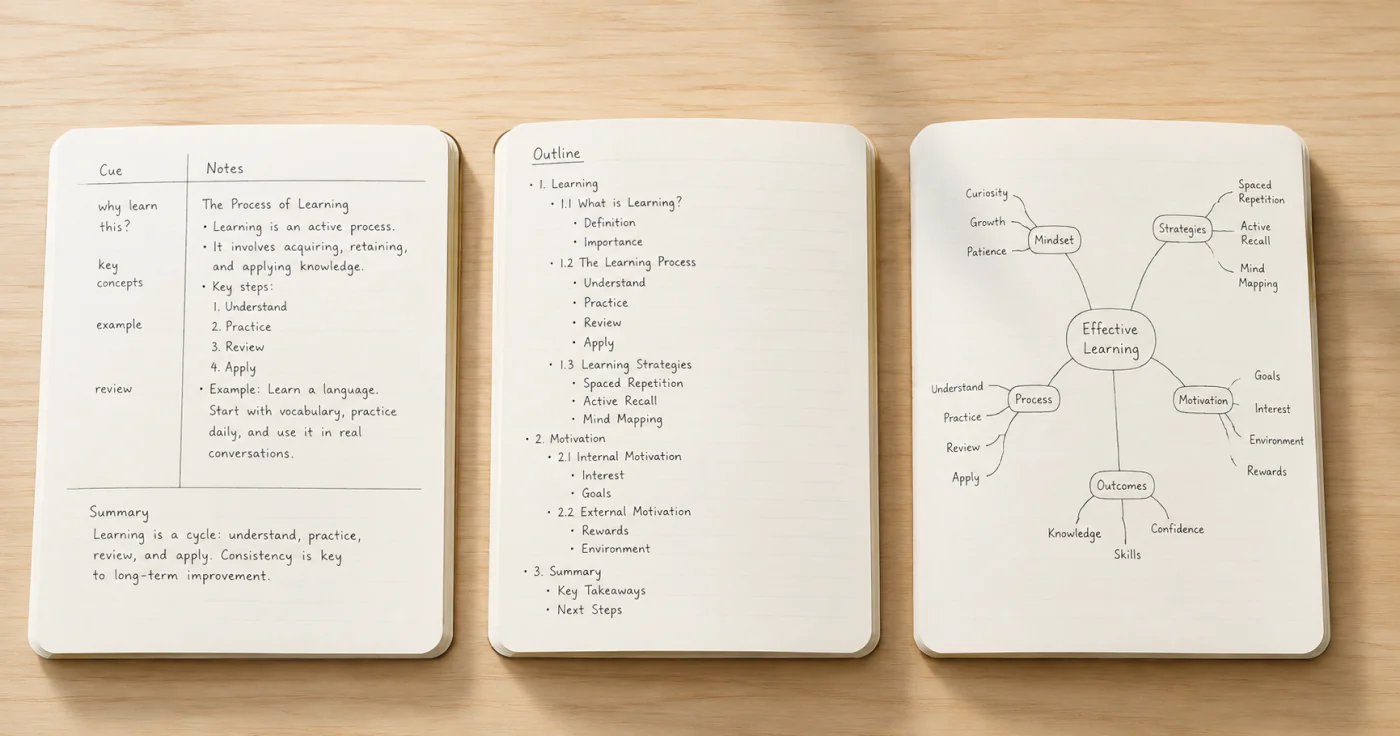 Cue
Notes
why learn
this?
key
concepts
example
review
The Process of Learning
• Learning is an active process.
• It involves acquiring, retaining,
and applying knowledge.
• Key steps:
1. Understand
2. Practice
3. Review
4. Apply
• Example: Learn a language.
Start with vocabulary, practice
daily, and use it in real
conversations.
Summary
Learning is a cycle: understand, practice,
review, and apply. Consistency is key
to long-term improvement.
Outline
• 1. Learning
• 1.1 What is Learning?
• Definition
• Importance
• 1.2 The Learning Process
• Understand
• Practice
• Review
• Apply
• 1.3 Learning Strategies
• Spaced Repetition
• Active Recall
• Mind Mapping
• 2. Motivation
• 2.1 Internal Motivation
• Interest
• Goals
• 2.2 External Motivation
• Rewards
• Environment
• 3. Summary
• Key Takeaways
• Next Steps
Effective
Learning
Mindset
Curiosity
Growth
Patience
Strategies
Spaced
Repetition
Active
Recall
Mind
Mapping
Process
Understand
Practice
Review
Apply
Motivation
Goals
Interest
Environment
Rewards
Outcomes
Knowledge
Skills
Confidence